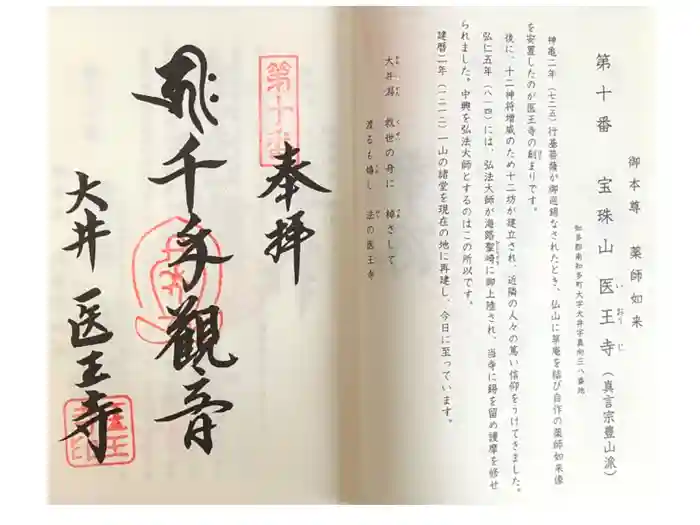 御本尊 薬師如来
第十番 宝珠山 医王寺（真言宗豊山派）
いおうじ
知多郡南知多町大字大井字真向三八番地
神亀二年（七二五）行基菩薩が御巡錫なされたとき、仏山に草庵を結び自作の薬師如来像
を安置したのが医王寺の創まりです。
後に、十二神将増威のため十二坊が建立され、近隣の人々の篤い信仰をうけてきました。
弘仁五年（八一四）には、弘法大師が海路聖崎に御上陸され、当寺に錫を留め護摩を修せ
られました。中興を弘法大師とするのはこの所以です。
建暦二年（一二一二）一山の諸堂を現在の地に再建し、今日に至っています。
大井潟 救世の舟に 棹さして
渡るも嬉し 法の医王寺
第十番
奉拝
千手観音
大井 医王寺